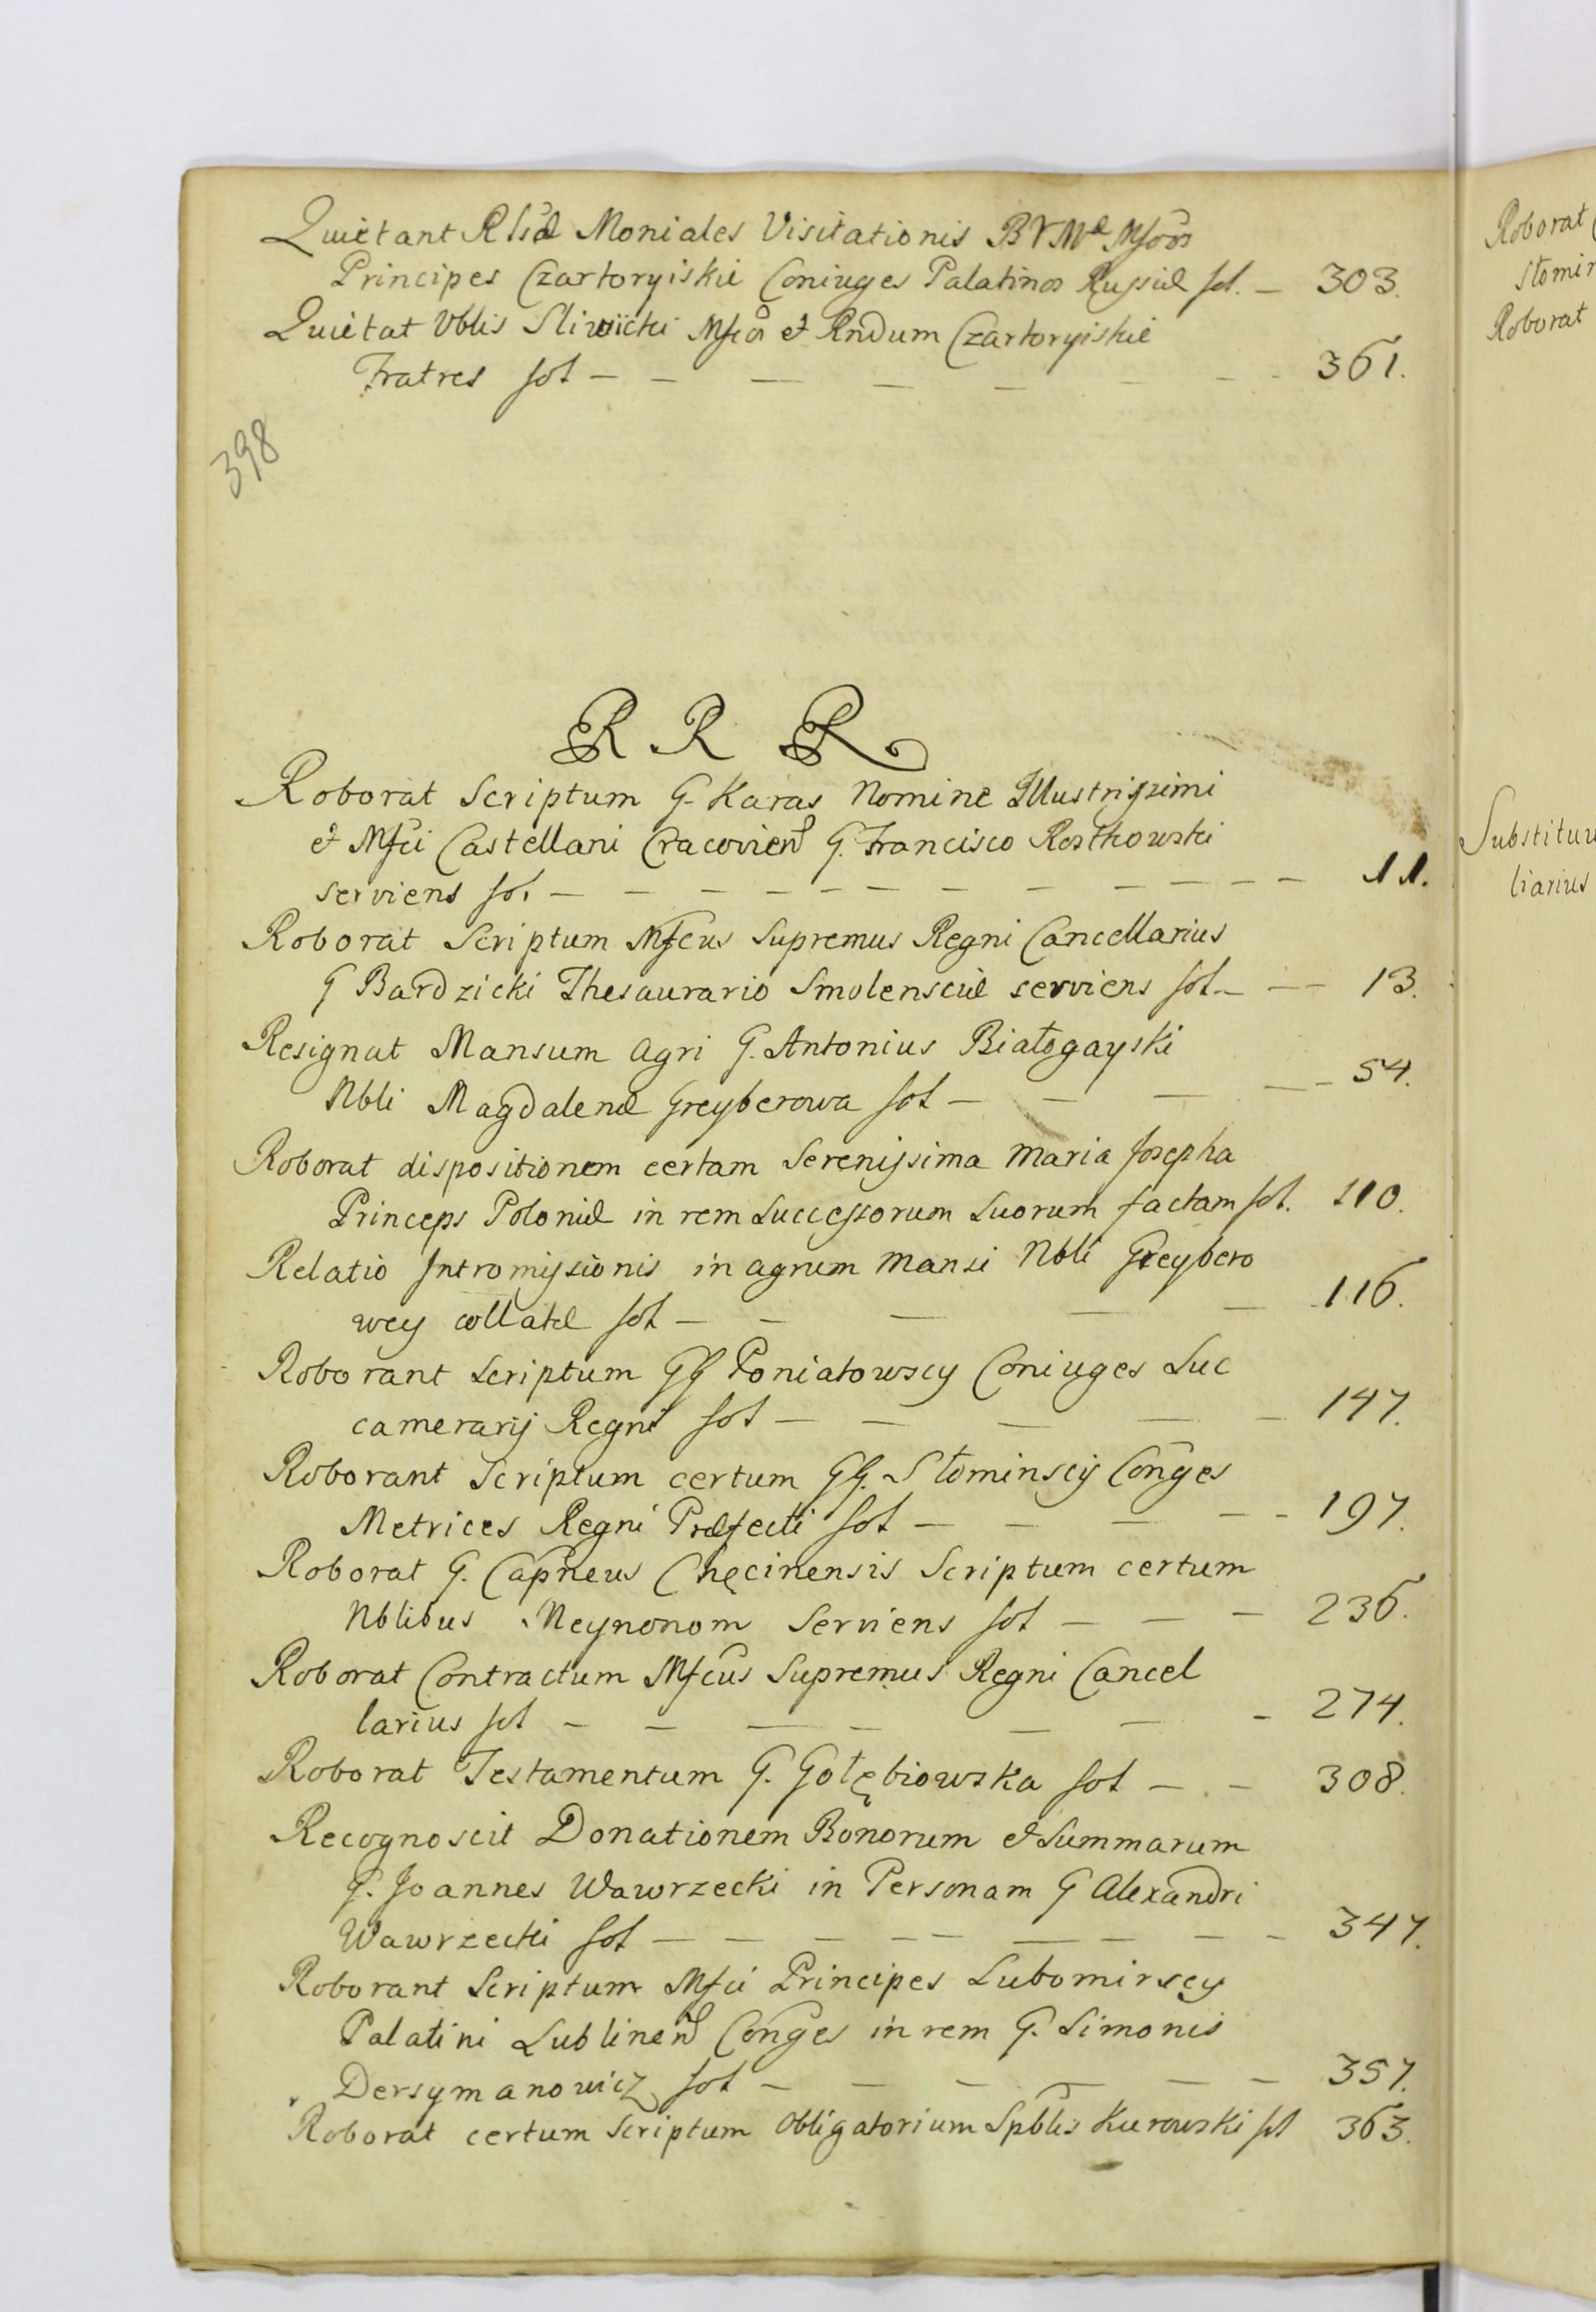 Quietant Rlsæ Moniales Visitationis BVMæ Mfcos
Principes Czartoryiskie Coniuges Palatinos Russiæ fol. — 303.
Quietat Vblis Sliwicki Mfcos et Rndum Czartoryiskie
Fratres fol — — — — — — — 361.
398
R R R
Roborat Scriptum G. Karas Nomine Illustrissimi
et Mfci Castellani Cracovien G. Francisco Rostkowski
serviens fol — — — — — — — — — — 11.
Roborat Scriptum Mfcus Supremus Regni Cancellarius
G Bardzicki Thesaurario Smolensciæ serviens fol — — — 13.
Resignat Mansum agri G. Antonius Białogayski
Nbli Magdalenæ Greyberowa fol — — — — — 54.
Roborat dispositionem certam Serenissima Maria Josepha
Princeps Poloniæ in rem Successorum Suorum factam fol. 110.
Relatio Intromissionis in agrum Mansi Nbli Greybero
wey collatæ fol — — — — — 116.
Roborant Scriptum GG Poniatowscy Coniuges Suc
camerarij Regni fol — — — — — 147.
Roborant Scriptum certum GG. Słominscy Conges
Metrices Regni Præfecti fol — — — — — 197.
Roborat G. Capneus Chęcinensis Scriptum certum
Nblibus Meynonom Serviens fol — — — 236.
Roborat Contractum Mfcus Supremus Regni Cancel
larius fol — — — — — — — 274.
Roborat Testamentum G. Gołębiowska fol — — 308.
Recognoscit Donationem Bonorum et Summarum
G. Joannes Wawrzecki in Personam G Alexandri
Wawrzecki fol — — — — — — — — — 347.
Roborant Scriptum Mfci Principes Lubomirscy
Palatini Lublinen Conges in rem G. Simonis
Dersymanowicz fol — — — — — — 357.
Roborat certum Scriptum Obligatorium Spblis Kurowski fol 363.
Roborat
Słomin
Roborat
Substituu
liarius